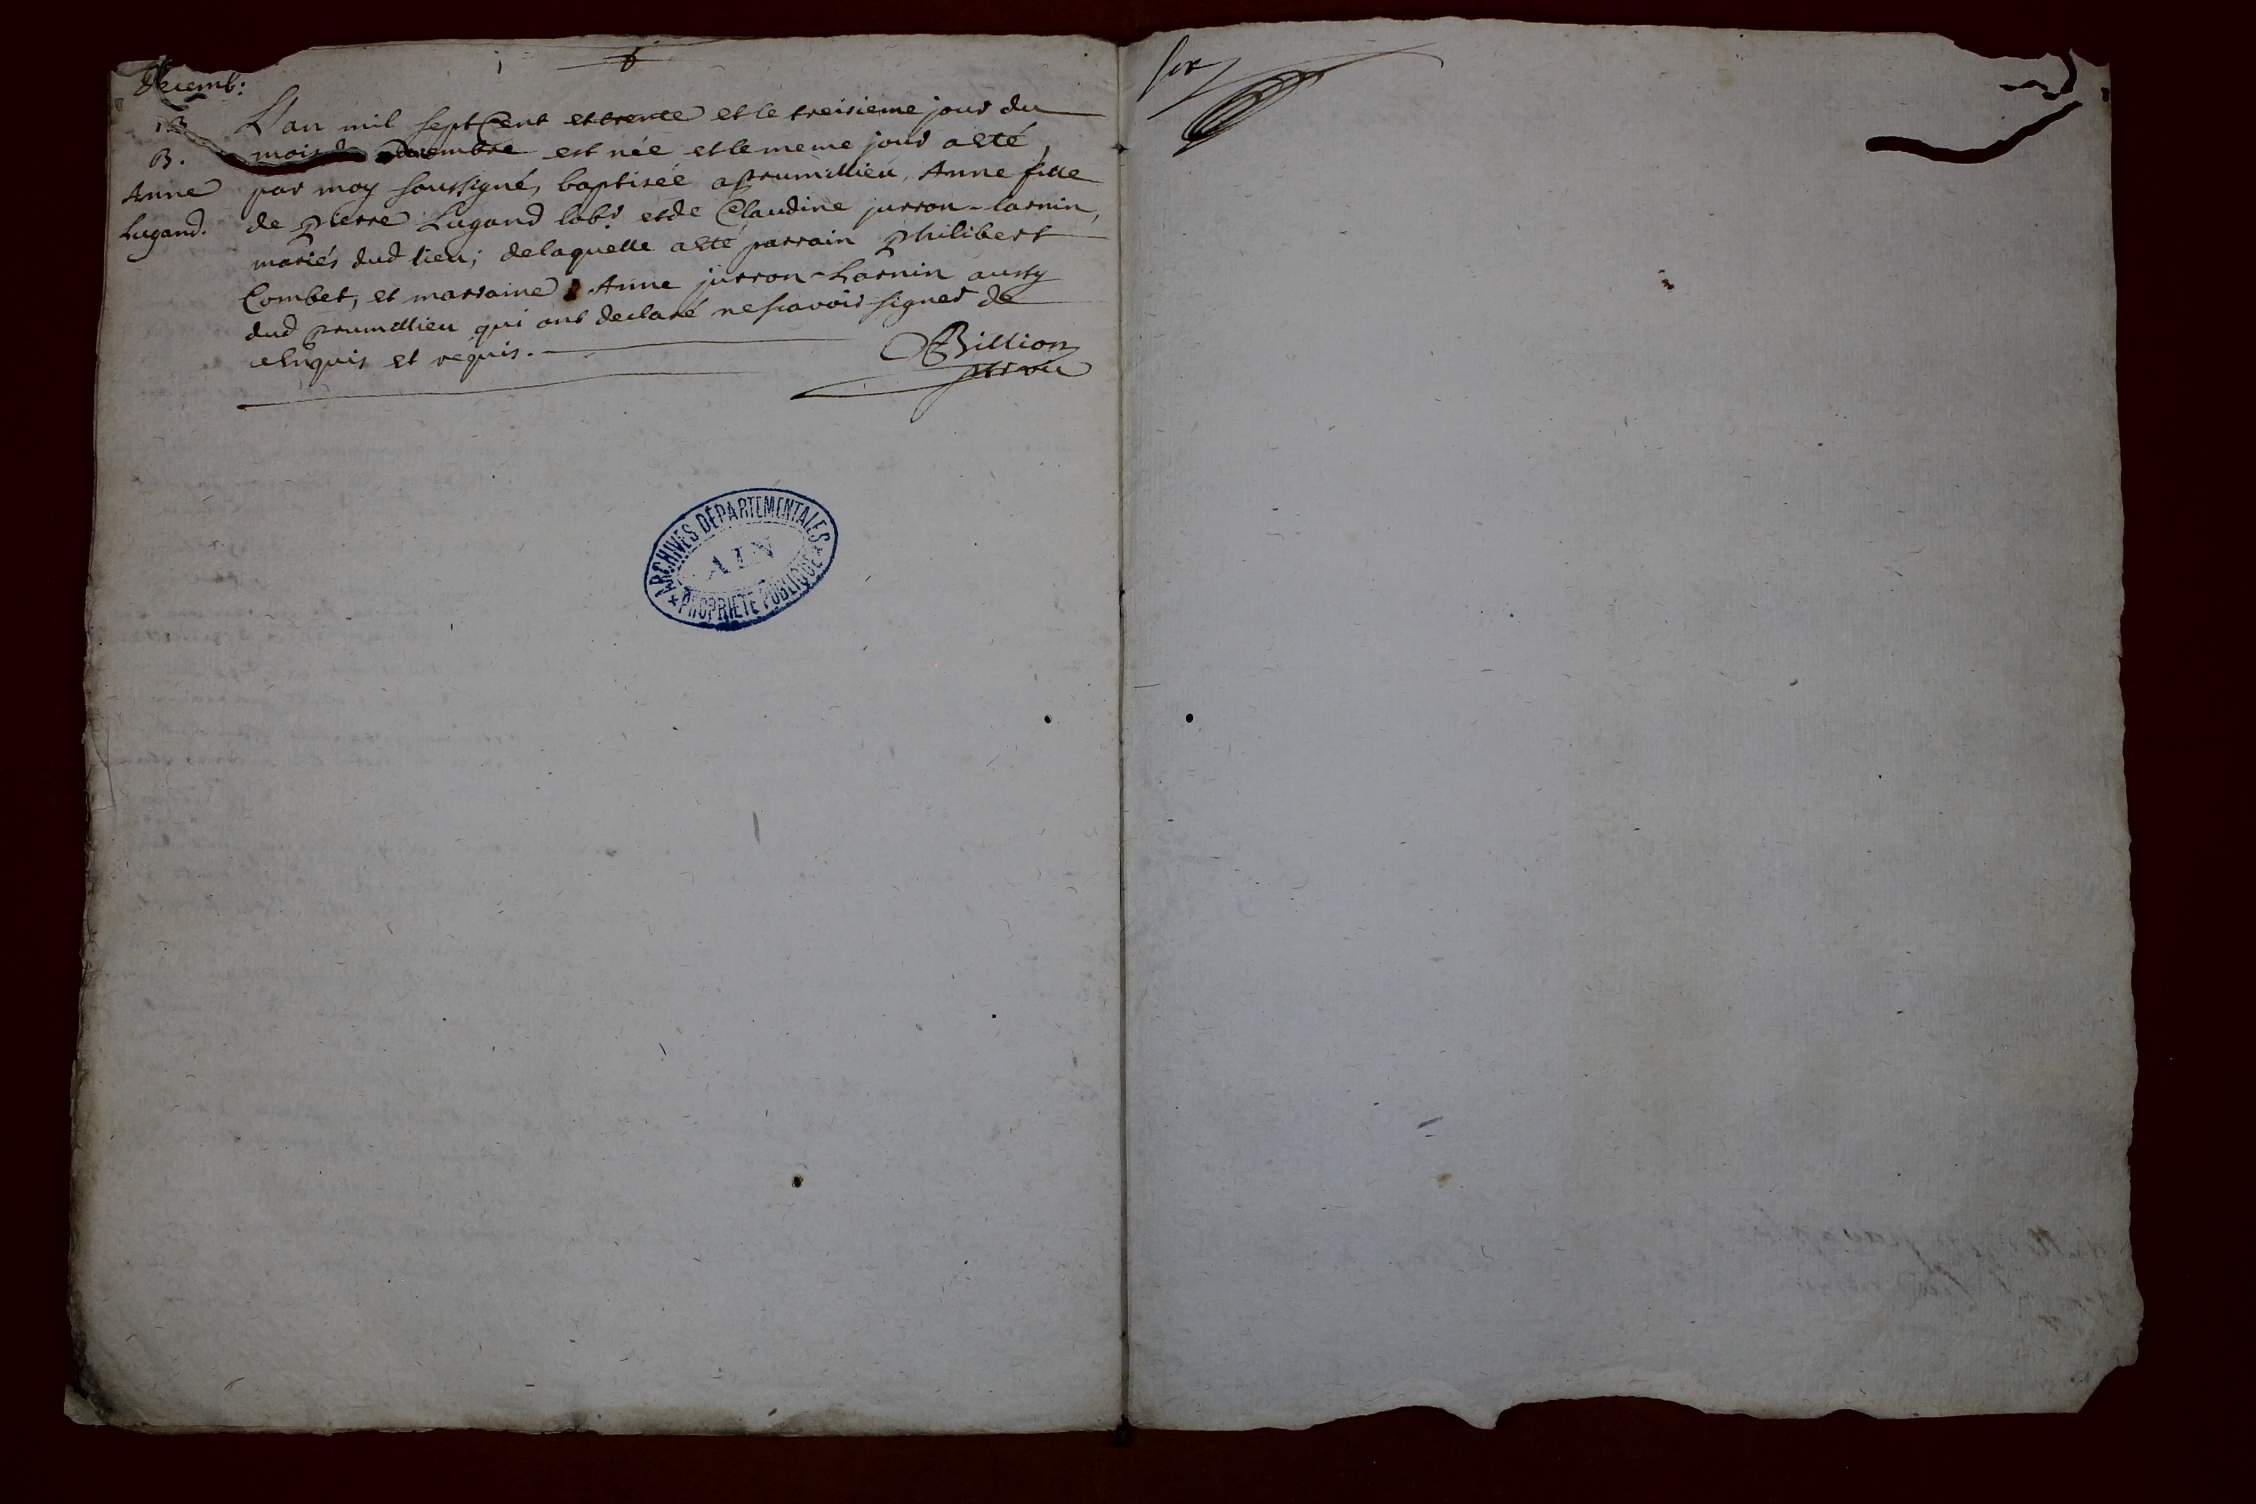 Decemb:
13
B.
Anne
Lugand.
L'an mil sept Cent et trente et le treisieme jour du
mois decembre est née et le meme jour a eté
par moy soussigné, baptisée a prumillieu, Anne fille
de pierre Lugand labr et de Claudine jurron-larnin,
mariés dud lieu; de laquelle a eté parrain philibert
Combet, et marraine Anne jurron-Larnin aussy
dud prumillieu qui ont declaré ne scavoir signer de
ce enquis et requis.
Billion
six
ARCHIVES DÉPARTEMENTALES
AIN
PROPRIÉTÉ PUBLIQUE